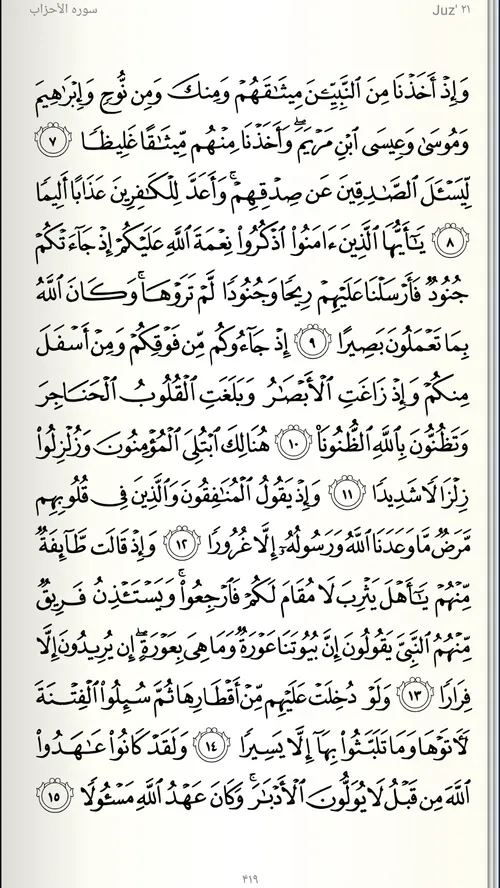 سوره الأحزاب Juz' ٢١
وَإِذْ أَخَذْنَا مِنَ ٱلنَّبِيِّـۧنَ مِيثَـٰقَهُمْ وَمِنكَ وَمِن نُّوحٍ وَإِبْرَٰهِيمَ
وَمُوسَىٰ وَعِيسَى ٱبْنِ مَرْيَمَ ۖ وَأَخَذْنَا مِنْهُم مِّيثَـٰقًا غَلِيظًا ٧
لِّيَسْـَٔلَ ٱلصَّـٰدِقِينَ عَن صِدْقِهِمْ ۚ وَأَعَدَّ لِلْكَـٰفِرِينَ عَذَابًا أَلِيمًا
٨ يَـٰٓأَيُّهَا ٱلَّذِينَ ءَامَنُوا۟ ٱذْكُرُوا۟ نِعْمَةَ ٱللَّهِ عَلَيْكُمْ إِذْ جَآءَتْكُمْ
جُنُودٌ فَأَرْسَلْنَا عَلَيْهِمْ رِيحًا وَجُنُودًا لَّمْ تَرَوْهَا ۚ وَكَانَ ٱللَّهُ
بِمَا تَعْمَلُونَ بَصِيرًا ٩ إِذْ جَآءُوكُم مِّن فَوْقِكُمْ وَمِنْ أَسْفَلَ
مِنكُمْ وَإِذْ زَاغَتِ ٱلْأَبْصَـٰرُ وَبَلَغَتِ ٱلْقُلُوبُ ٱلْحَنَاجِرَ
وَتَظُنُّونَ بِٱللَّهِ ٱلظُّنُونَا۠ ١٠ هُنَالِكَ ٱبْتُلِىَ ٱلْمُؤْمِنُونَ وَزُلْزِلُوا۟
زِلْزَالًا شَدِيدًا ١١ وَإِذْ يَقُولُ ٱلْمُنَـٰفِقُونَ وَٱلَّذِينَ فِى قُلُوبِهِم
مَّرَضٌ مَّا وَعَدَنَا ٱللَّهُ وَرَسُولُهُۥٓ إِلَّا غُرُورًا ١٢ وَإِذْ قَالَت طَّآئِفَةٌ
مِّنْهُمْ يَـٰٓأَهْلَ يَثْرِبَ لَا مُقَامَ لَكُمْ فَٱرْجِعُوا۟ ۚ وَيَسْتَـْٔذِنُ فَرِيقٌ
مِّنْهُمُ ٱلنَّبِىَّ يَقُولُونَ إِنَّ بُيُوتَنَا عَوْرَةٌ وَمَا هِىَ بِعَوْرَةٍ ۖ إِن يُرِيدُونَ إِلَّا
فِرَارًا ١٣ وَلَوْ دُخِلَتْ عَلَيْهِم مِّنْ أَقْطَارِهَا ثُمَّ سُئِلُوا۟ ٱلْفِتْنَةَ
لَـَٔاتَوْهَا وَمَا تَلَبَّثُوا۟ بِهَآ إِلَّا يَسِيرًا ١٤ وَلَقَدْ كَانُوا۟ عَـٰهَدُوا۟
ٱللَّهَ مِن قَبْلُ لَا يُوَلُّونَ ٱلْأَدْبَـٰرَ ۚ وَكَانَ عَهْدُ ٱللَّهِ مَسْـُٔولًا ١٥
۴۱۹